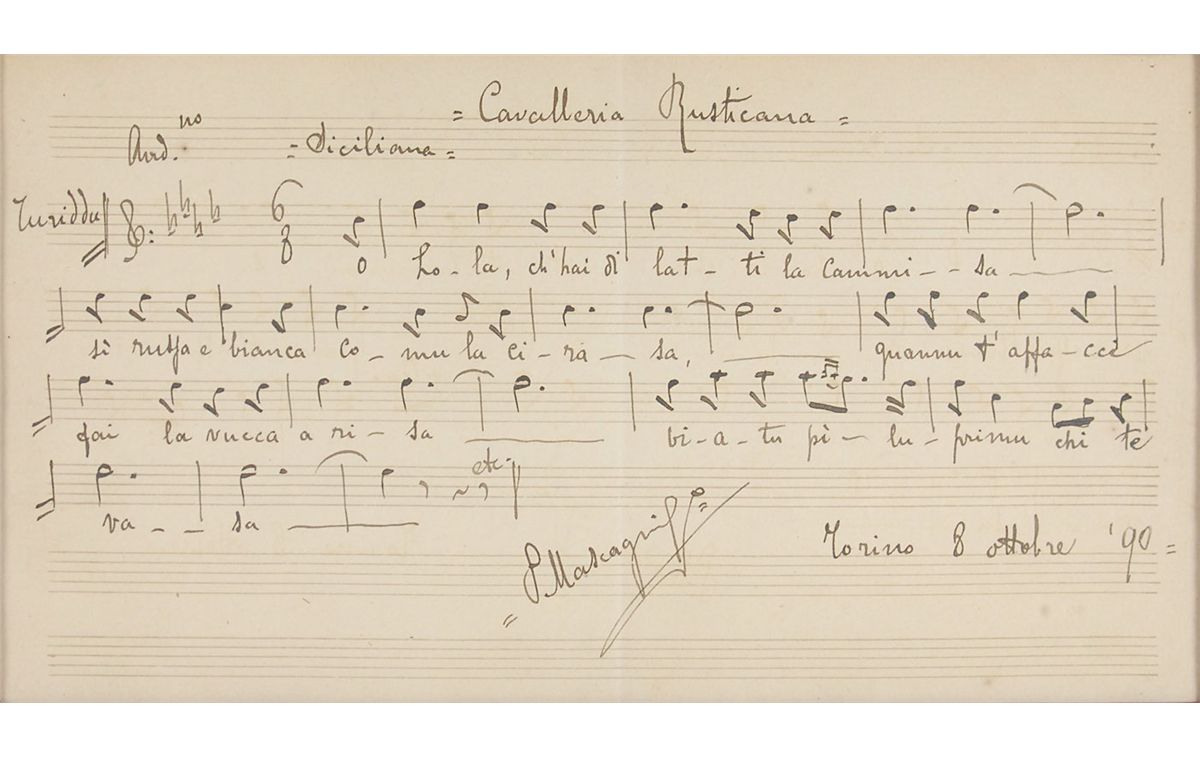 = Cavalleria Rusticana =
And.no = Siciliana =
Turiddu 6 8
O Lo - la, ch'hai di latt - ti la cammi - - sa
si russa e bianca co - mu la ci - ra - sa,
quannu t'affa - cci
fai la vucca a ri - sa bi - a - tu pi - lu - primu chi te
va - - sa etc.
= P. Mascagni =
Torino 8 ottobre '90 =